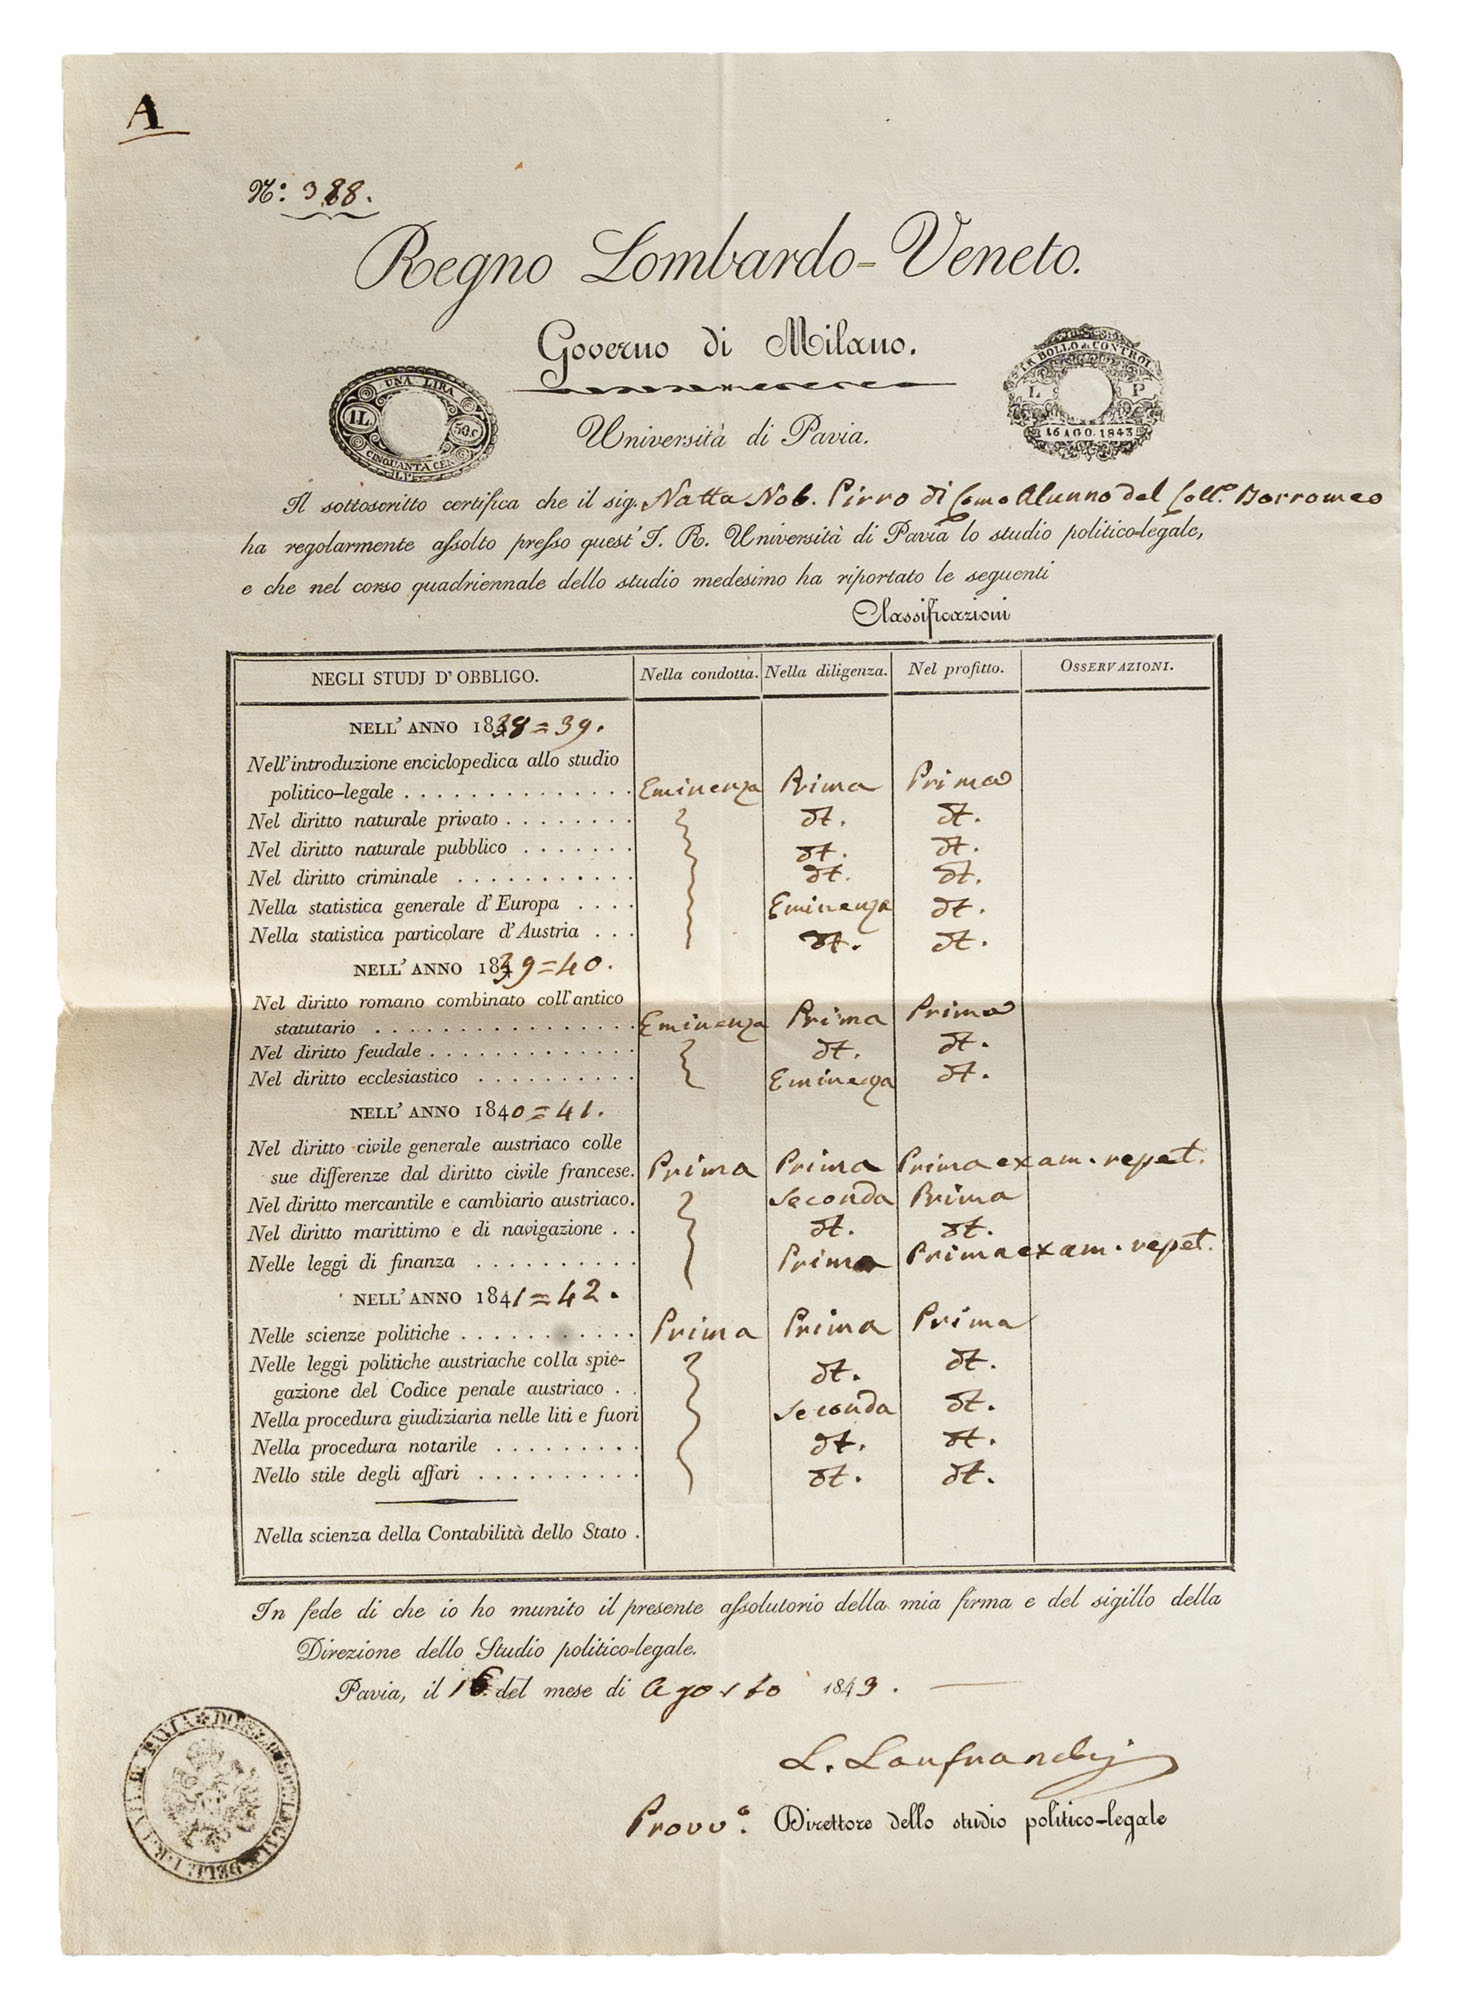 A
N.º 388.
Regno Lombardo-Veneto.
Governo di Milano.
UNA LIRA
1 L. 50. C
CINQUANTA CEN
BOLLO & CONTROL
L P
16 AGO. 1843
Università di Pavia.
Il sottoscritto certifica che il sig. Natta Nob. Pirro di Como Alunno del Coll.º Borromeo
ha regolarmente assolto presso quest' I. R. Università di Pavia lo studio politico-legale,
e che nel corso quadriennale dello studio medesimo ha riportato le seguenti
Classificazioni
NEGLI STUDJ D'OBBLIGO. Nella condotta. Nella diligenza. Nel profitto. OSSERVAZIONI.
NELL' ANNO 1838=39.
Nell'introduzione enciclopedica allo studio
politico-legale . . . . . . . . . . . . . . Eminenza Prima Prima
Nel diritto naturale privato . . . . . . . . dt. dt.
Nel diritto naturale pubblico . . . . . . . dt. dt.
Nel diritto criminale . . . . . . . . . . . dt. dt.
Nella statistica generale d'Europa . . . . Eminenza dt.
Nella statistica particolare d'Austria . . . dt. dt.
NELL' ANNO 1839=40.
Nel diritto romano combinato coll'antico
statutario . . . . . . . . . . . . . . . . Eminenza Prima Prima
Nel diritto feudale . . . . . . . . . . . . . dt. dt.
Nel diritto ecclesiastico . . . . . . . . . . Eminenza dt.
NELL' ANNO 1840=41.
Nel diritto civile generale austriaco colle
sue differenze dal diritto civile francese. Prima Prima Prima exam. repet.
Nel diritto mercantile e cambiario austriaco. Seconda Prima
Nel diritto marittimo e di navigazione . . dt. dt.
Nelle leggi di finanza . . . . . . . . . . Prima Prima exam. repet.
NELL' ANNO 1841=42.
Nelle scienze politiche . . . . . . . . . . . Prima Prima Prima
Nelle leggi politiche austriache colla spie-
gazione del Codice penale austriaco . . dt. dt.
Nella procedura giudiziaria nelle liti e fuori Seconda dt.
Nella procedura notarile . . . . . . . . . dt. dt.
Nello stile degli affari . . . . . . . . . . dt. dt.
Nella scienza della Contabilità dello Stato .
In fede di che io ho munito il presente assolutorio della mia firma e del sigillo della
Direzione dello Studio politico-legale.
Pavia, il 16 del mese di Agosto 1843.
L. Lanfranchi
Provv.º Direttore dello studio politico-legale